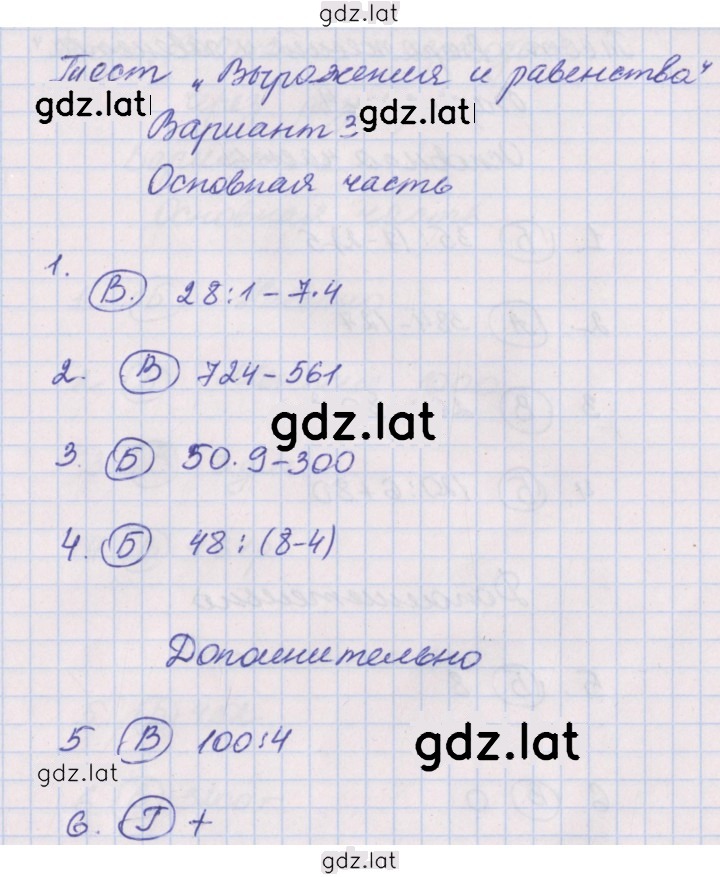 gdz.lat
Тест „Выражения и равенства"
gdz.lat
Вариант 3
gdz.lat
Основная часть
1. В. 28:1-7·4
2. В 724-561
gdz.lat
3. Б 50·9-300
4. Б 48:(8-4)
Дополнительно
5 В 100:4
gdz.lat
gdz.lat
6. Г +
gdz.lat